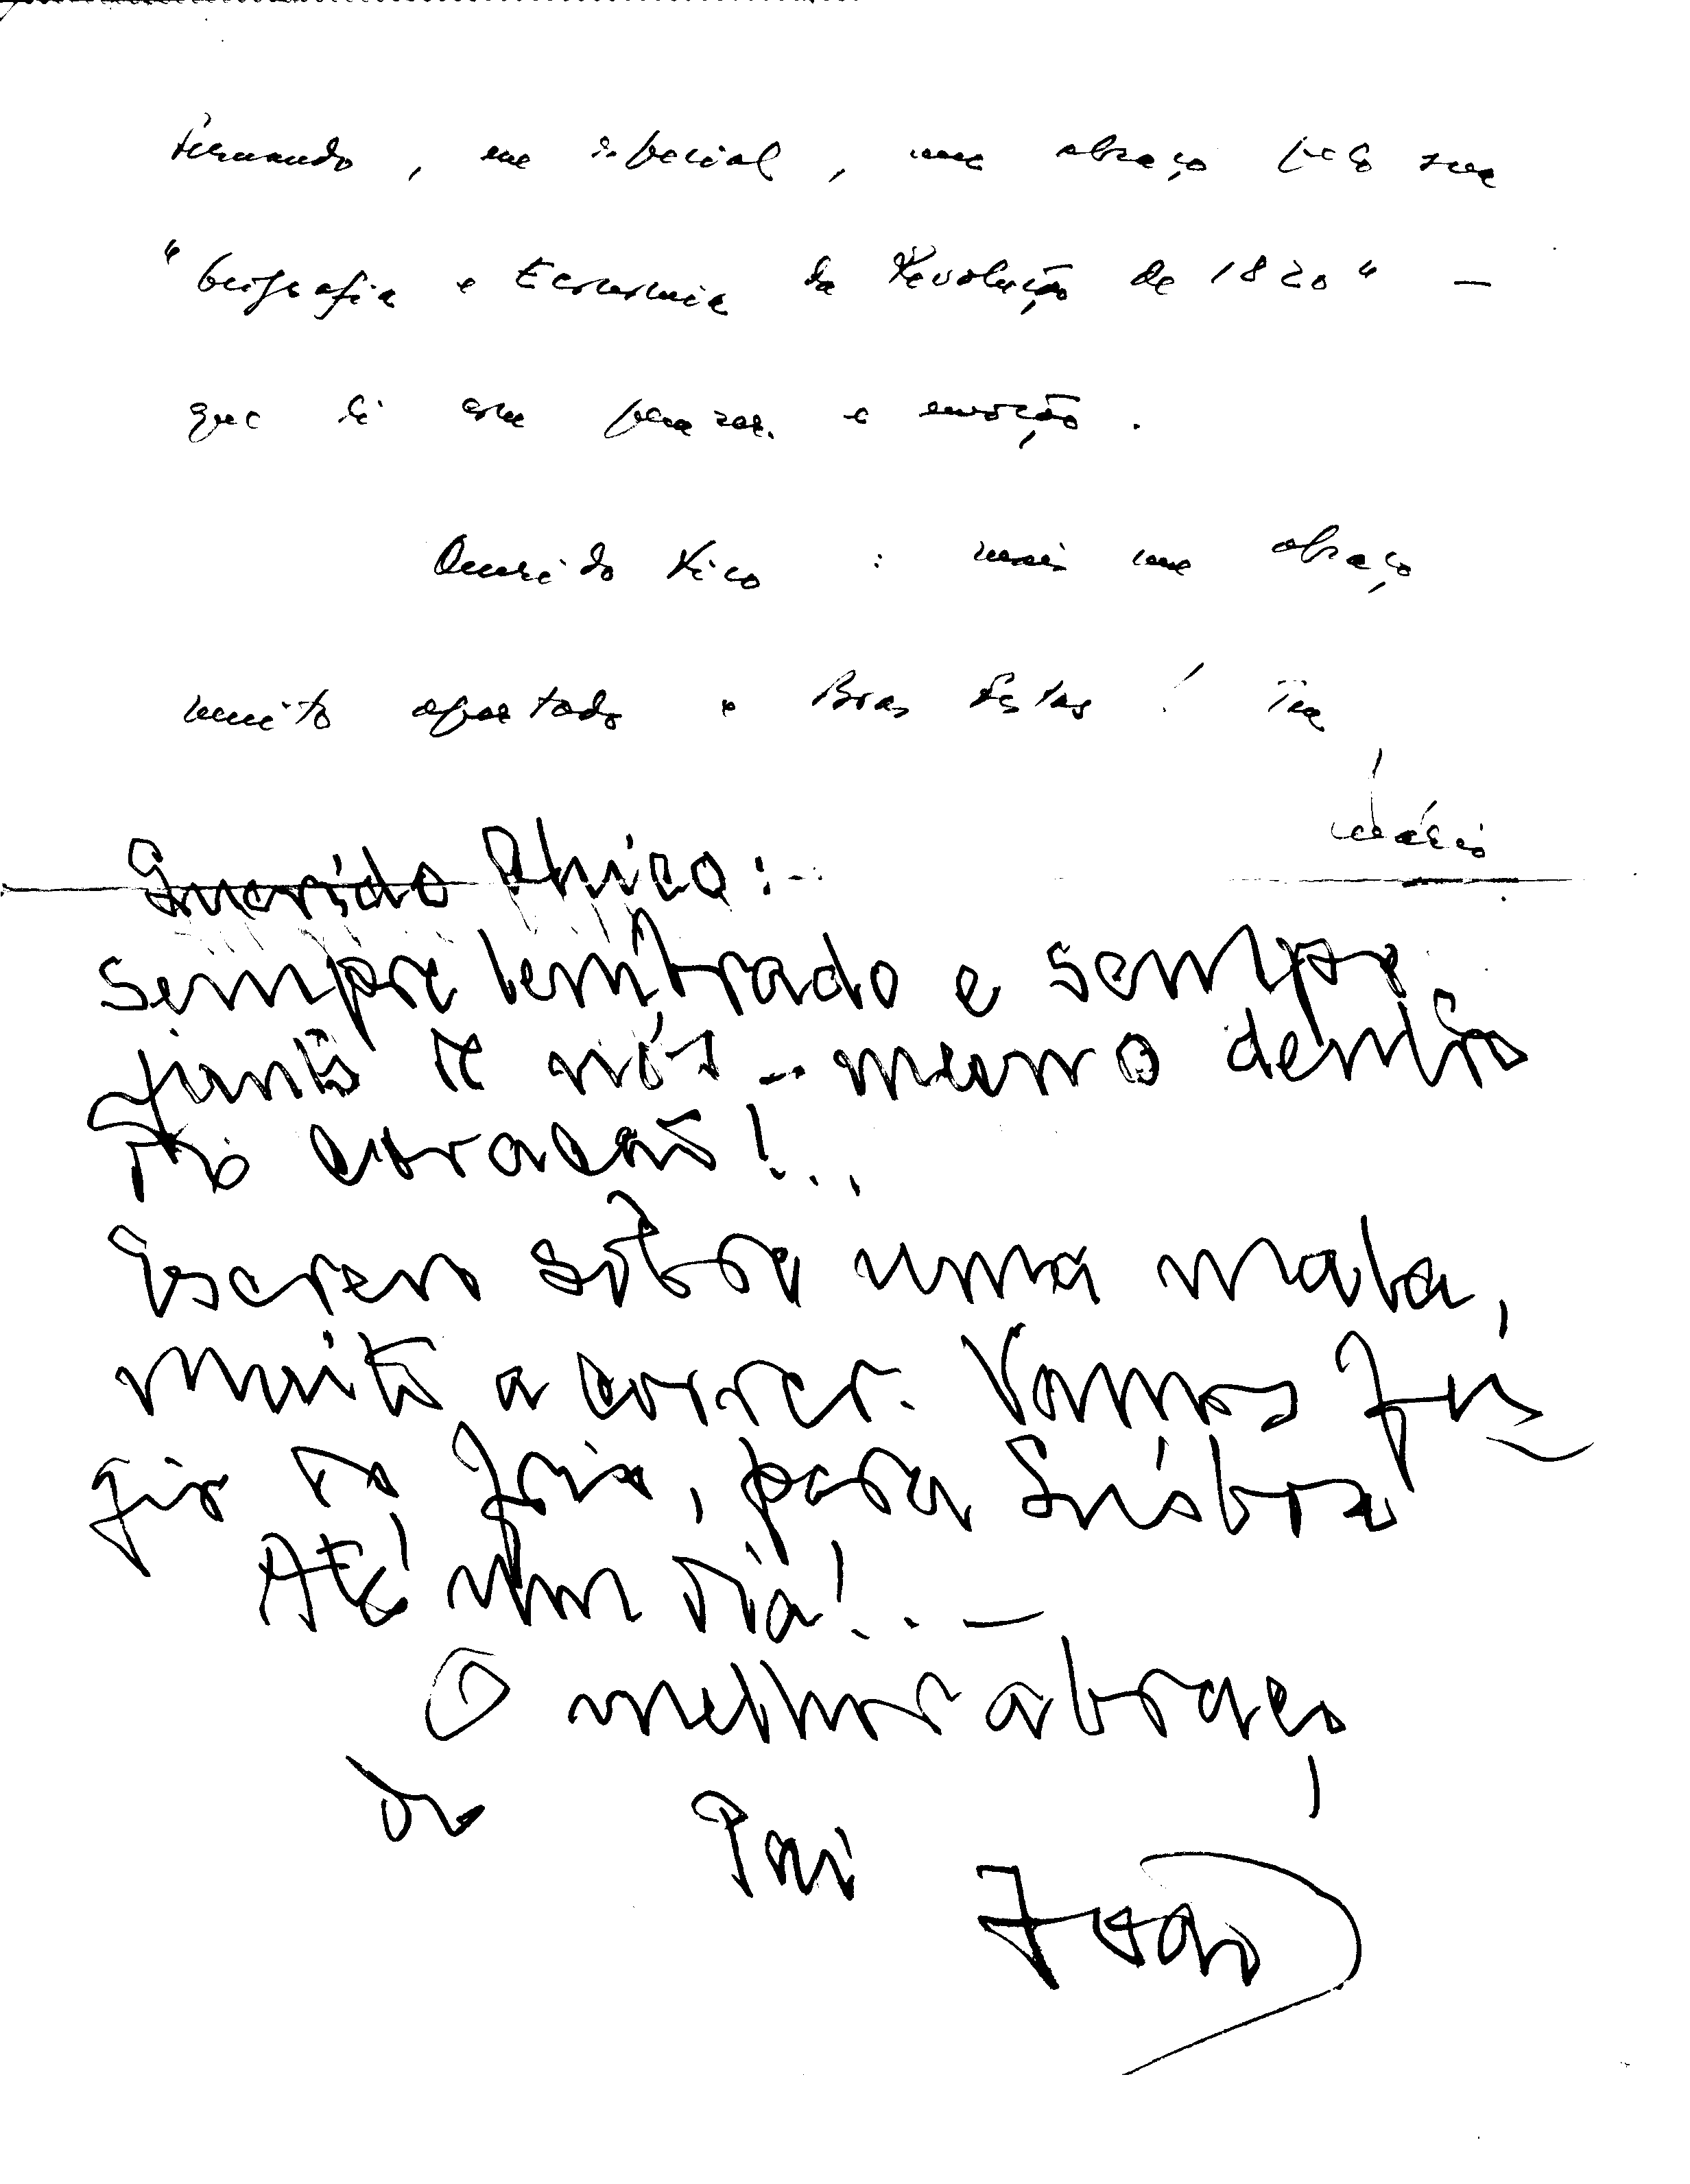 Fernando, em especial, um abraço pelo seu
"Geografia e Economia da Revolução de 1820" —
que li com prazer e emoção.
Querido Xico : mais um abraço
muito apertado e Boas Festas! Teu
Mário
Querido Chico:-
sempre lembrado e sempre
junto de nós -- mesmo dentro
do coração!..
Escrevo sôbre uma mala,
muito a correr. Vamos fu-
gir do frio, para Lisboa
Até um dia!.. —
O melhor abraço,
do Pai
João